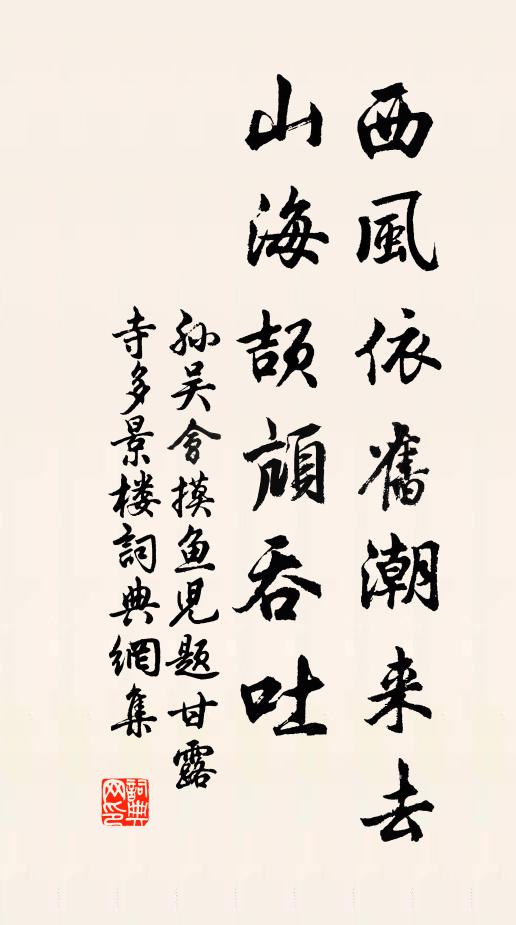 西風依舊潮来去
山海頡頏吞吐
孙吴會摸鱼児題甘露
寺多景楼詞典網集
詞典网印